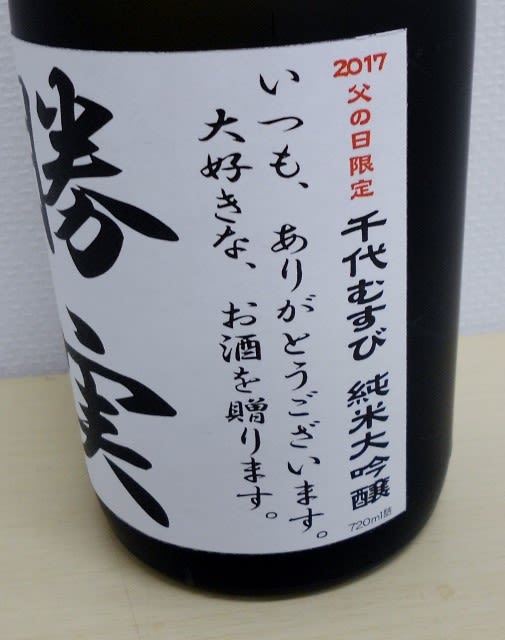 2017 父の日限定 千代むすび 純米大吟醸
720ml詰
いつも、ありがとうございます。
大好きな、お酒を贈ります。
勝実